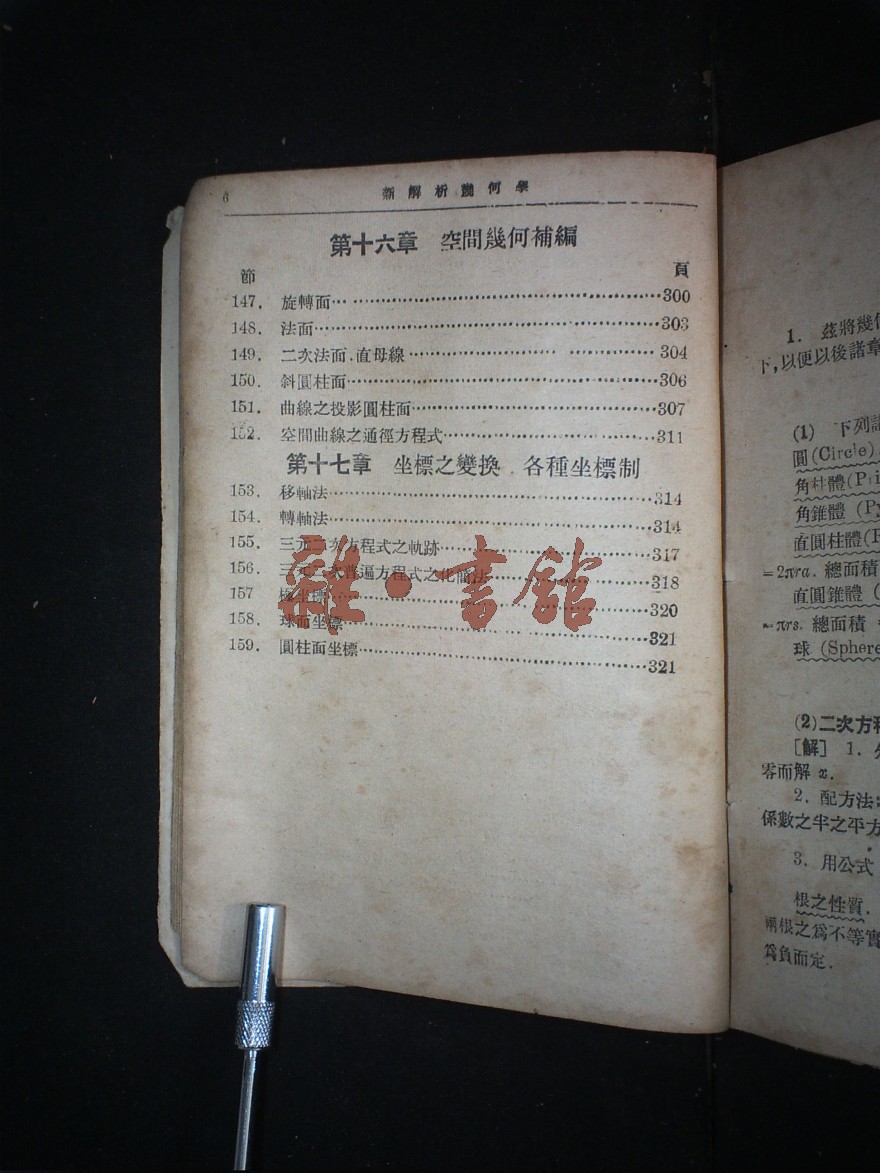 6 新解析幾何學
第十六章 空間幾何補編
節 頁
147. 旋轉面 300
148. 法面 303
149. 二次法面.直母線 304
150. 斜圓柱面 306
151. 曲線之投影圓柱面 307
152. 空間曲線之通徑方程式 311
第十七章 坐標之變換.各種坐標制
153. 移軸法 314
154. 轉軸法 314
155. 三元二次方程式之軌跡 317
156. 三元二次普遍方程式之化簡法 318
157 極坐標 320
158. 球面坐標 321
159. 圓柱面坐標 321
雜·書館
1. 茲將幾何
下,以便以後諸章
(1) 下列
圓(Circle)
角柱體(Pri
角錐體 (Py
直圓柱體(
=2πra. 總面積
直圓錐體 (
=πrs. 總面積
球 (Sphere
(2)二次方程
[解] 1.
零而解 x.
2. 配方法:
係數之半之平方
3. 用公式
根之性質.
兩根之爲不等實
爲負而定.